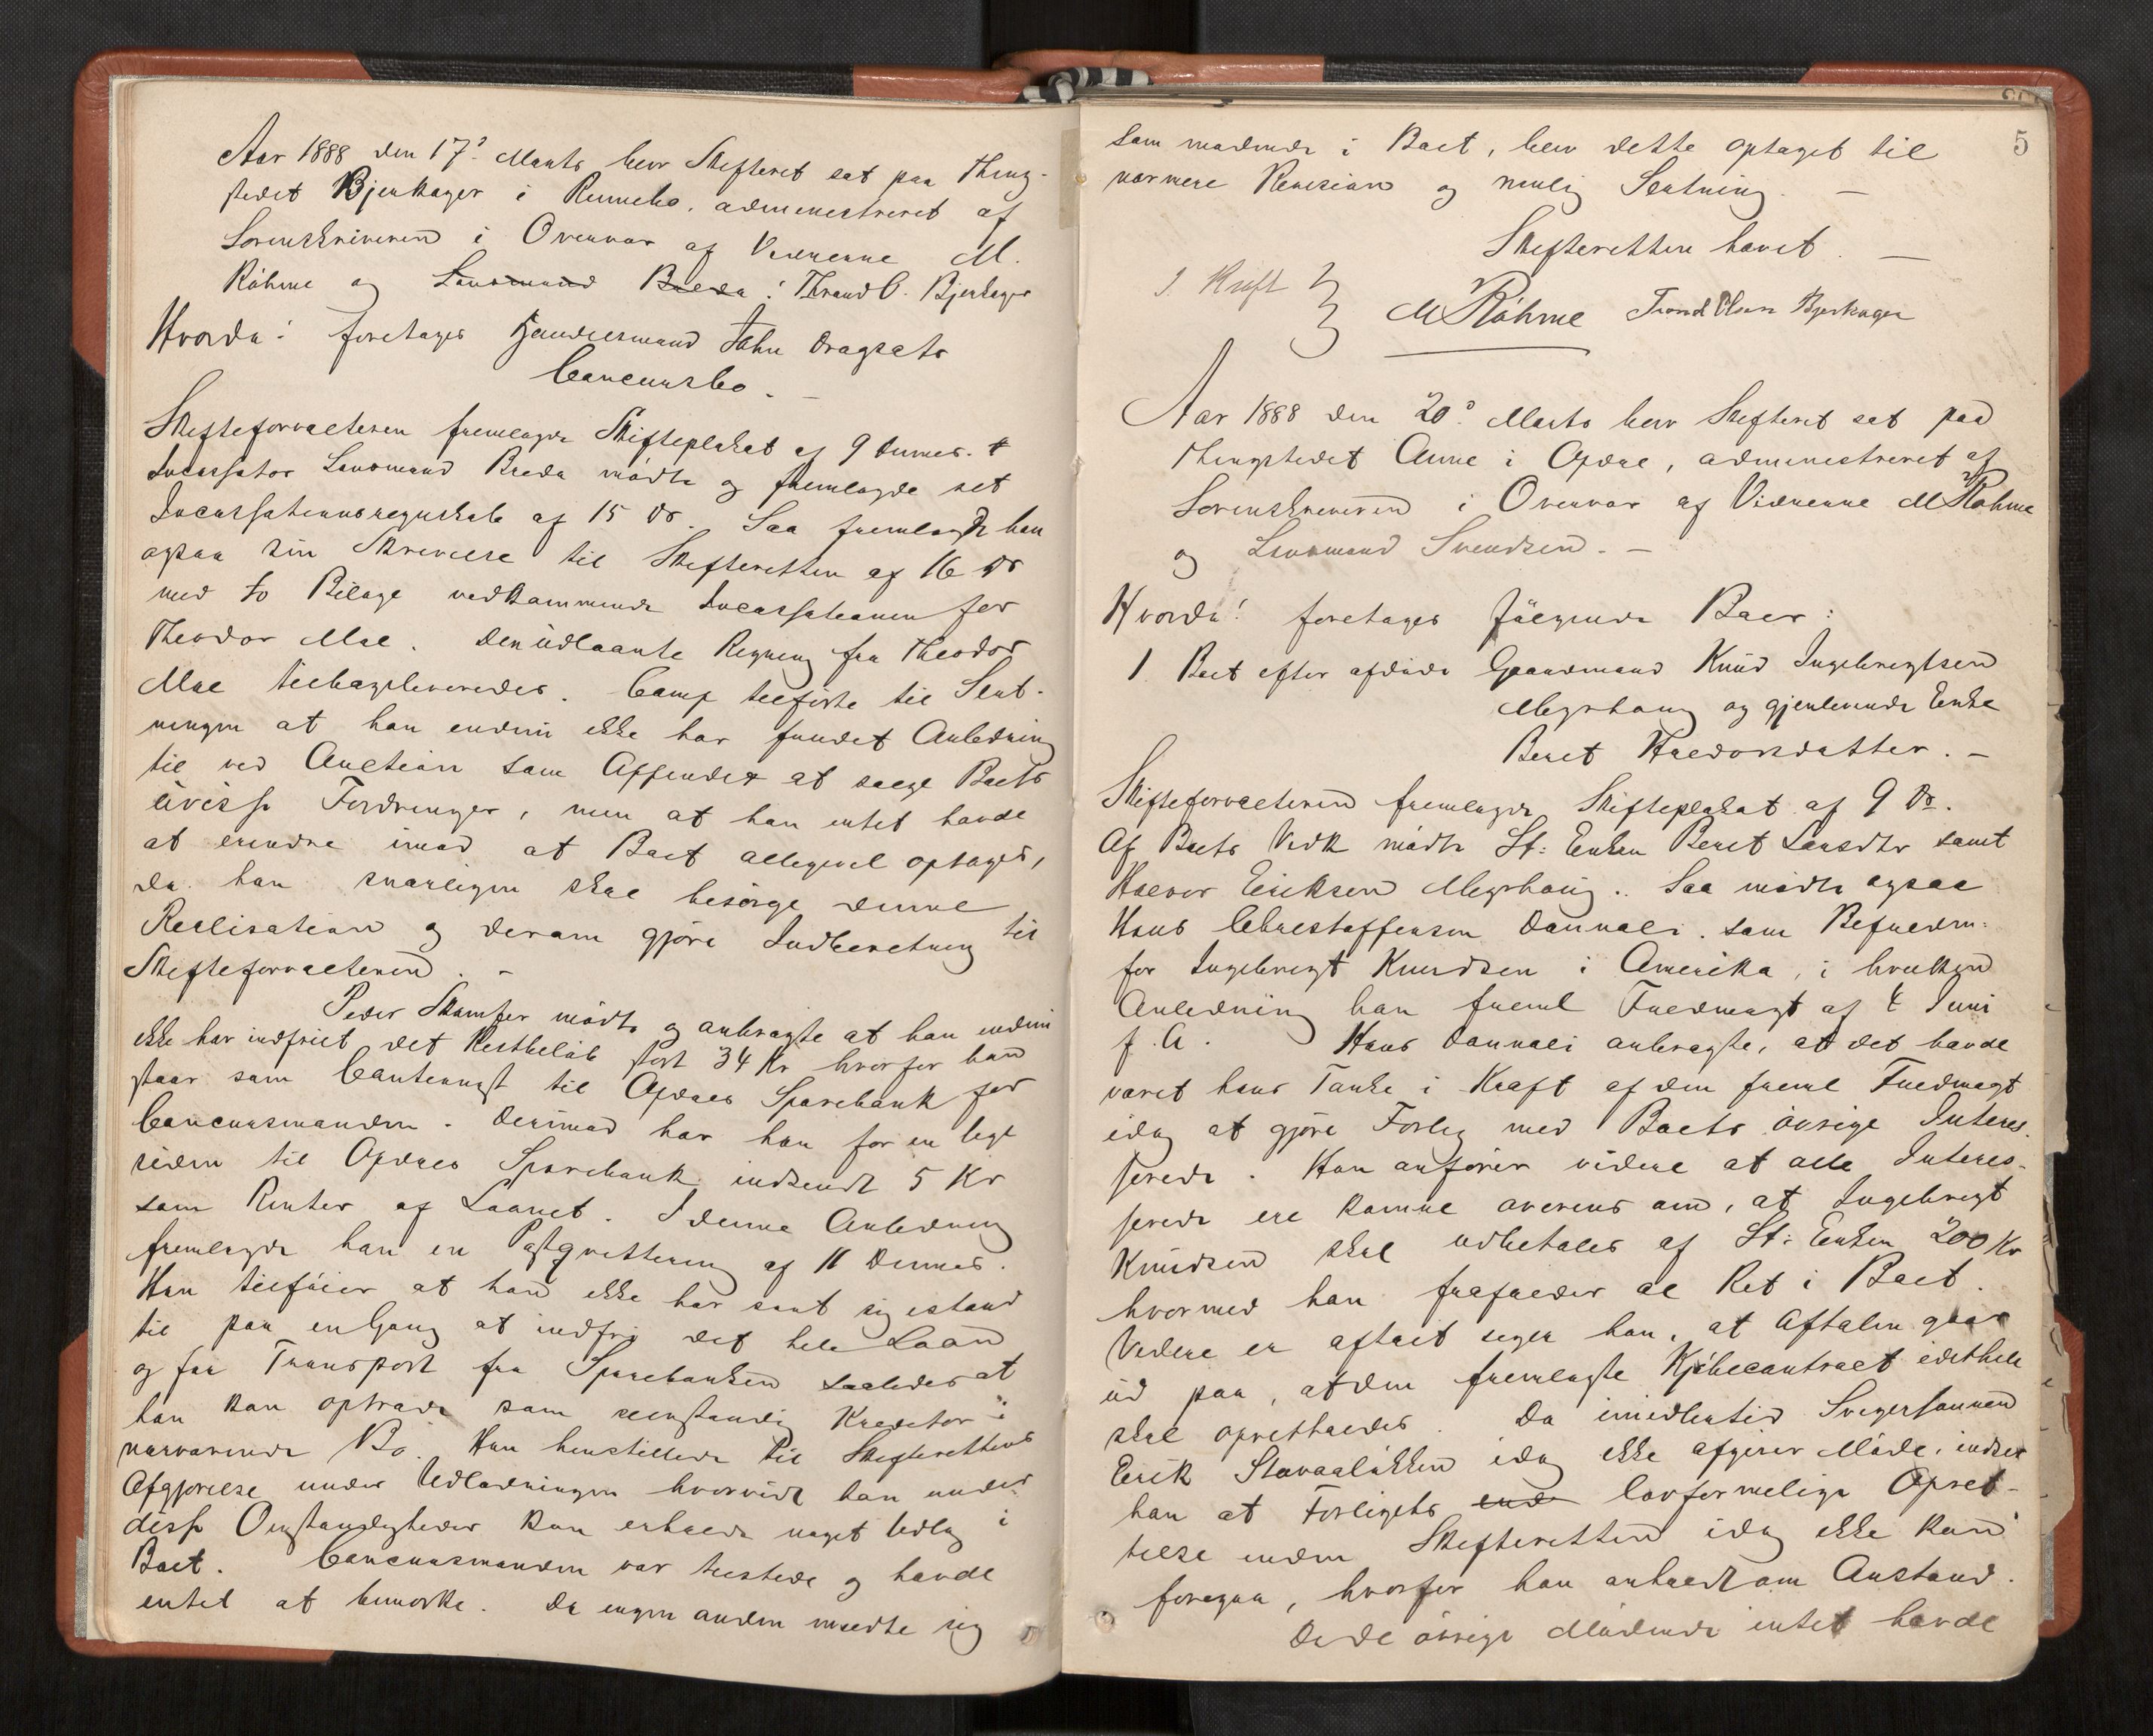 Aar 1888 den 17de Marts blev Skifteret sat paa Thing-
stedet Bjerkager i Rennebo, administreret af
Sorenskriveren i Overvær af Vidnerne M.
Röhme og Lensmand Breda : Thrond O. Bjerkager
Hvorda: foretages Handelsmand John Dragsets
Concursbo. —
Skifteforvalteren fremlagde Skifteplakat af 9 dennes.
Incassator Lensmand Breda mödte og fremlagde sit
Incassationsregnskab af 15 ds. Saa fremlagde han
ogsaa sin Skrivelse til Skifteretten af 16 ds
med to Bilage vedkommende Incassationen for
Theodor Moe. Den udlaante Regning fra Theodor
Moe tilbageleveredes. Comp tilföiede til Slut-
ningen at han endnu ikke har fundet Anledning
til ved Auction som Affendes at sælge Boets
uvisse Fordringer, men at han intet havde
at erindre imod at Boet alligevel optages,
da han snarligen skal besörge denne
Realisation og derom gjöre Indberetning til
Skifteforvalteren. —
Peder Skamfer mödte og anbragte at han endnu
ikke har indfriet det Restbelöb stort 34 Kr hvorfor han
staar som Cautionist til Opdals Sparebank for
Concursmanden. Derimod har han for en Uge
siden til Opdals Sparebank indsendt 5 Kr
som Renter af Laanet. I denne Anledning
fremlagde han en Postqvittering af 11 dennes.
Han tilföier at han ikke har seet sig istand
til paa en Gang at indfri det hele Laan
og faa Transport fra Sparebanken saaledes at
han kan optræde som selvstændig Kreditor i
nærværende Bo. Han henstillede til Skifterettens
Afgjörelse under Udlodningen hvorvidt han under
disse Omstændigheder kan erholde noget Udlæg i
Boet. Concursmanden var tilstede og havde
intet at bemærke. Da ingen anden meldte sig
5
som mödende i Boet, blev dette optaget til
nærmere Revision og mulig Slutning. —
Skifteretten hævet. —
J. Krift
M Röhme Trond Olsen Bjerkager
Aar 1888 den 20de Marts blev Skifteret sat paa
Thingstedet Aune i Opdal, administreret af
Sorenskriveren i Overvær af Vidnerne M Röhme
og Lensmand Svendsen. —
Hvorda! foretages fölgende Boer:
1 Boet efter afdöde Gaardmand Knud Ingebrigtsen
Megrhaug og gjenlevende Enke
Beret Haldorsdatter. —
Skifteforvalteren fremlagde Skifteplakat af 9 ds.
Af Boets Vedk mödte St: Enken Beret Larsdtr samt
Halvor Eriksen Megrhaug. Saa mödte ogsaa
Hans Christoffersen Dønnali. som Befuldm:
for Ingebrigt Knudsen i Amerika, i hvilken
Anledning han freml Fuldmagt af 4 Juni
f. A. Hans Donnali anbragte, at det havde
været hans Tanke i Kraft af den freml Fuldmagt
idag at gjöre Forlig med Boets övrige Interes-
serede. Han anförer videre at alle Interes-
serede ere komne overens om, at Ingebrigt
Knudsen skal udbetales af St: Enken 200 Kr
hvormed han frafalder al Ret i Boet.
Videre er aftalt siger han, at Aftalen gaar
ud paa, at den fremlagte Kjöbecontract idethele
skal opretholdes. Da imidlertid Svigersönnen
Erik Stavaalökken idag ikke afgiver Möde, indser
han at Forligets end lovformelige Opret-
telse inden Skifteretten idag ikke kan
foregaa, hvorfor han anholdt om Anstand.
Da de övrige Mödende intet havde